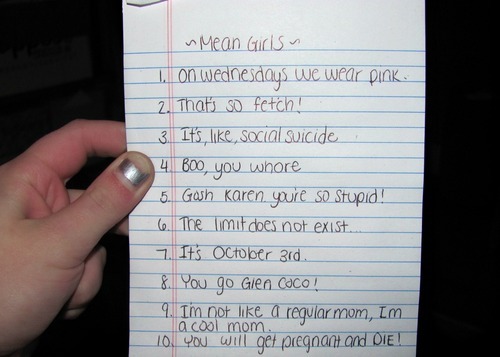 ~Mean Girls~
1. On wednesdays we wear pink.
2. That's so fetch!
3. It's, like, social suicide
4. Boo, you whore
5. Gosh Karen you're so stupid!
6. The limit does not exist...
7. It's October 3rd.
8. You go Glen Coco!
9. I'm not like a regular mom, I'm
a cool mom.
10. You will get pregnant and DIE!